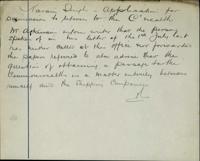 Taran Singh - Application for
permission to return to the C'wealth
Mr Atkinson inform writer that the
of his letter of the 1st July last
called at this office nor forwarded
the papers referred to also advise that the
question of obtaining a passage to the
Commonwealth is a matter entirely between
himself and the Shipping Company